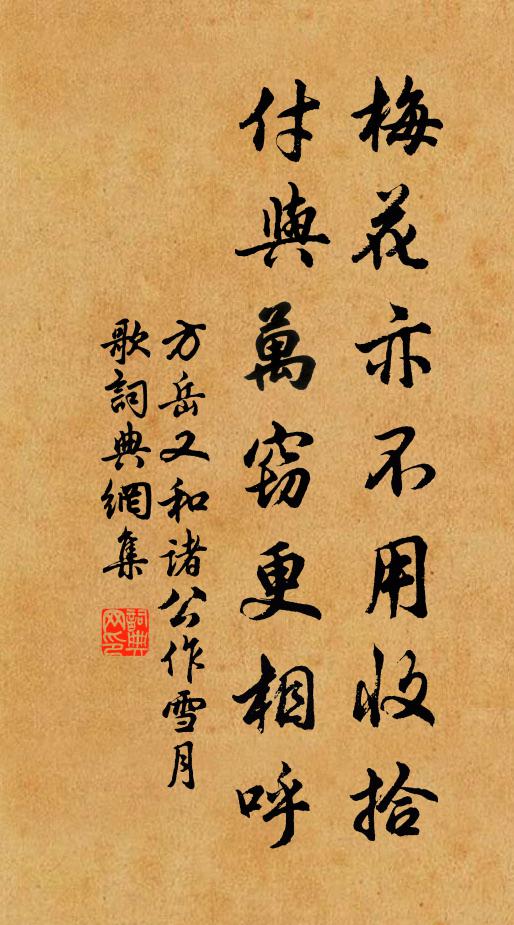 梅花亦不用收拾
付與萬竅更相呼
方岳又和諸公作雪月
歌詞典網集
詞典
网印